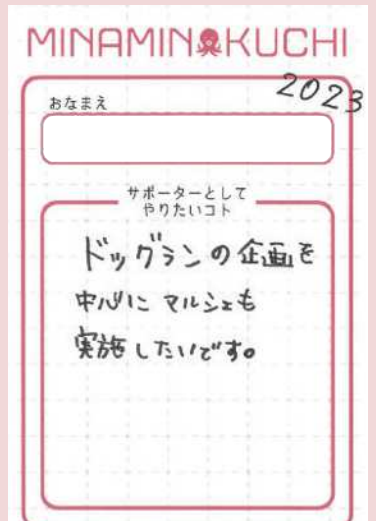 MINAMINOKUCHI
2023
おなまえ
サポーターとして
やりたいコト
ドッグランの企画を
中心に マルシェも
実施したいです。